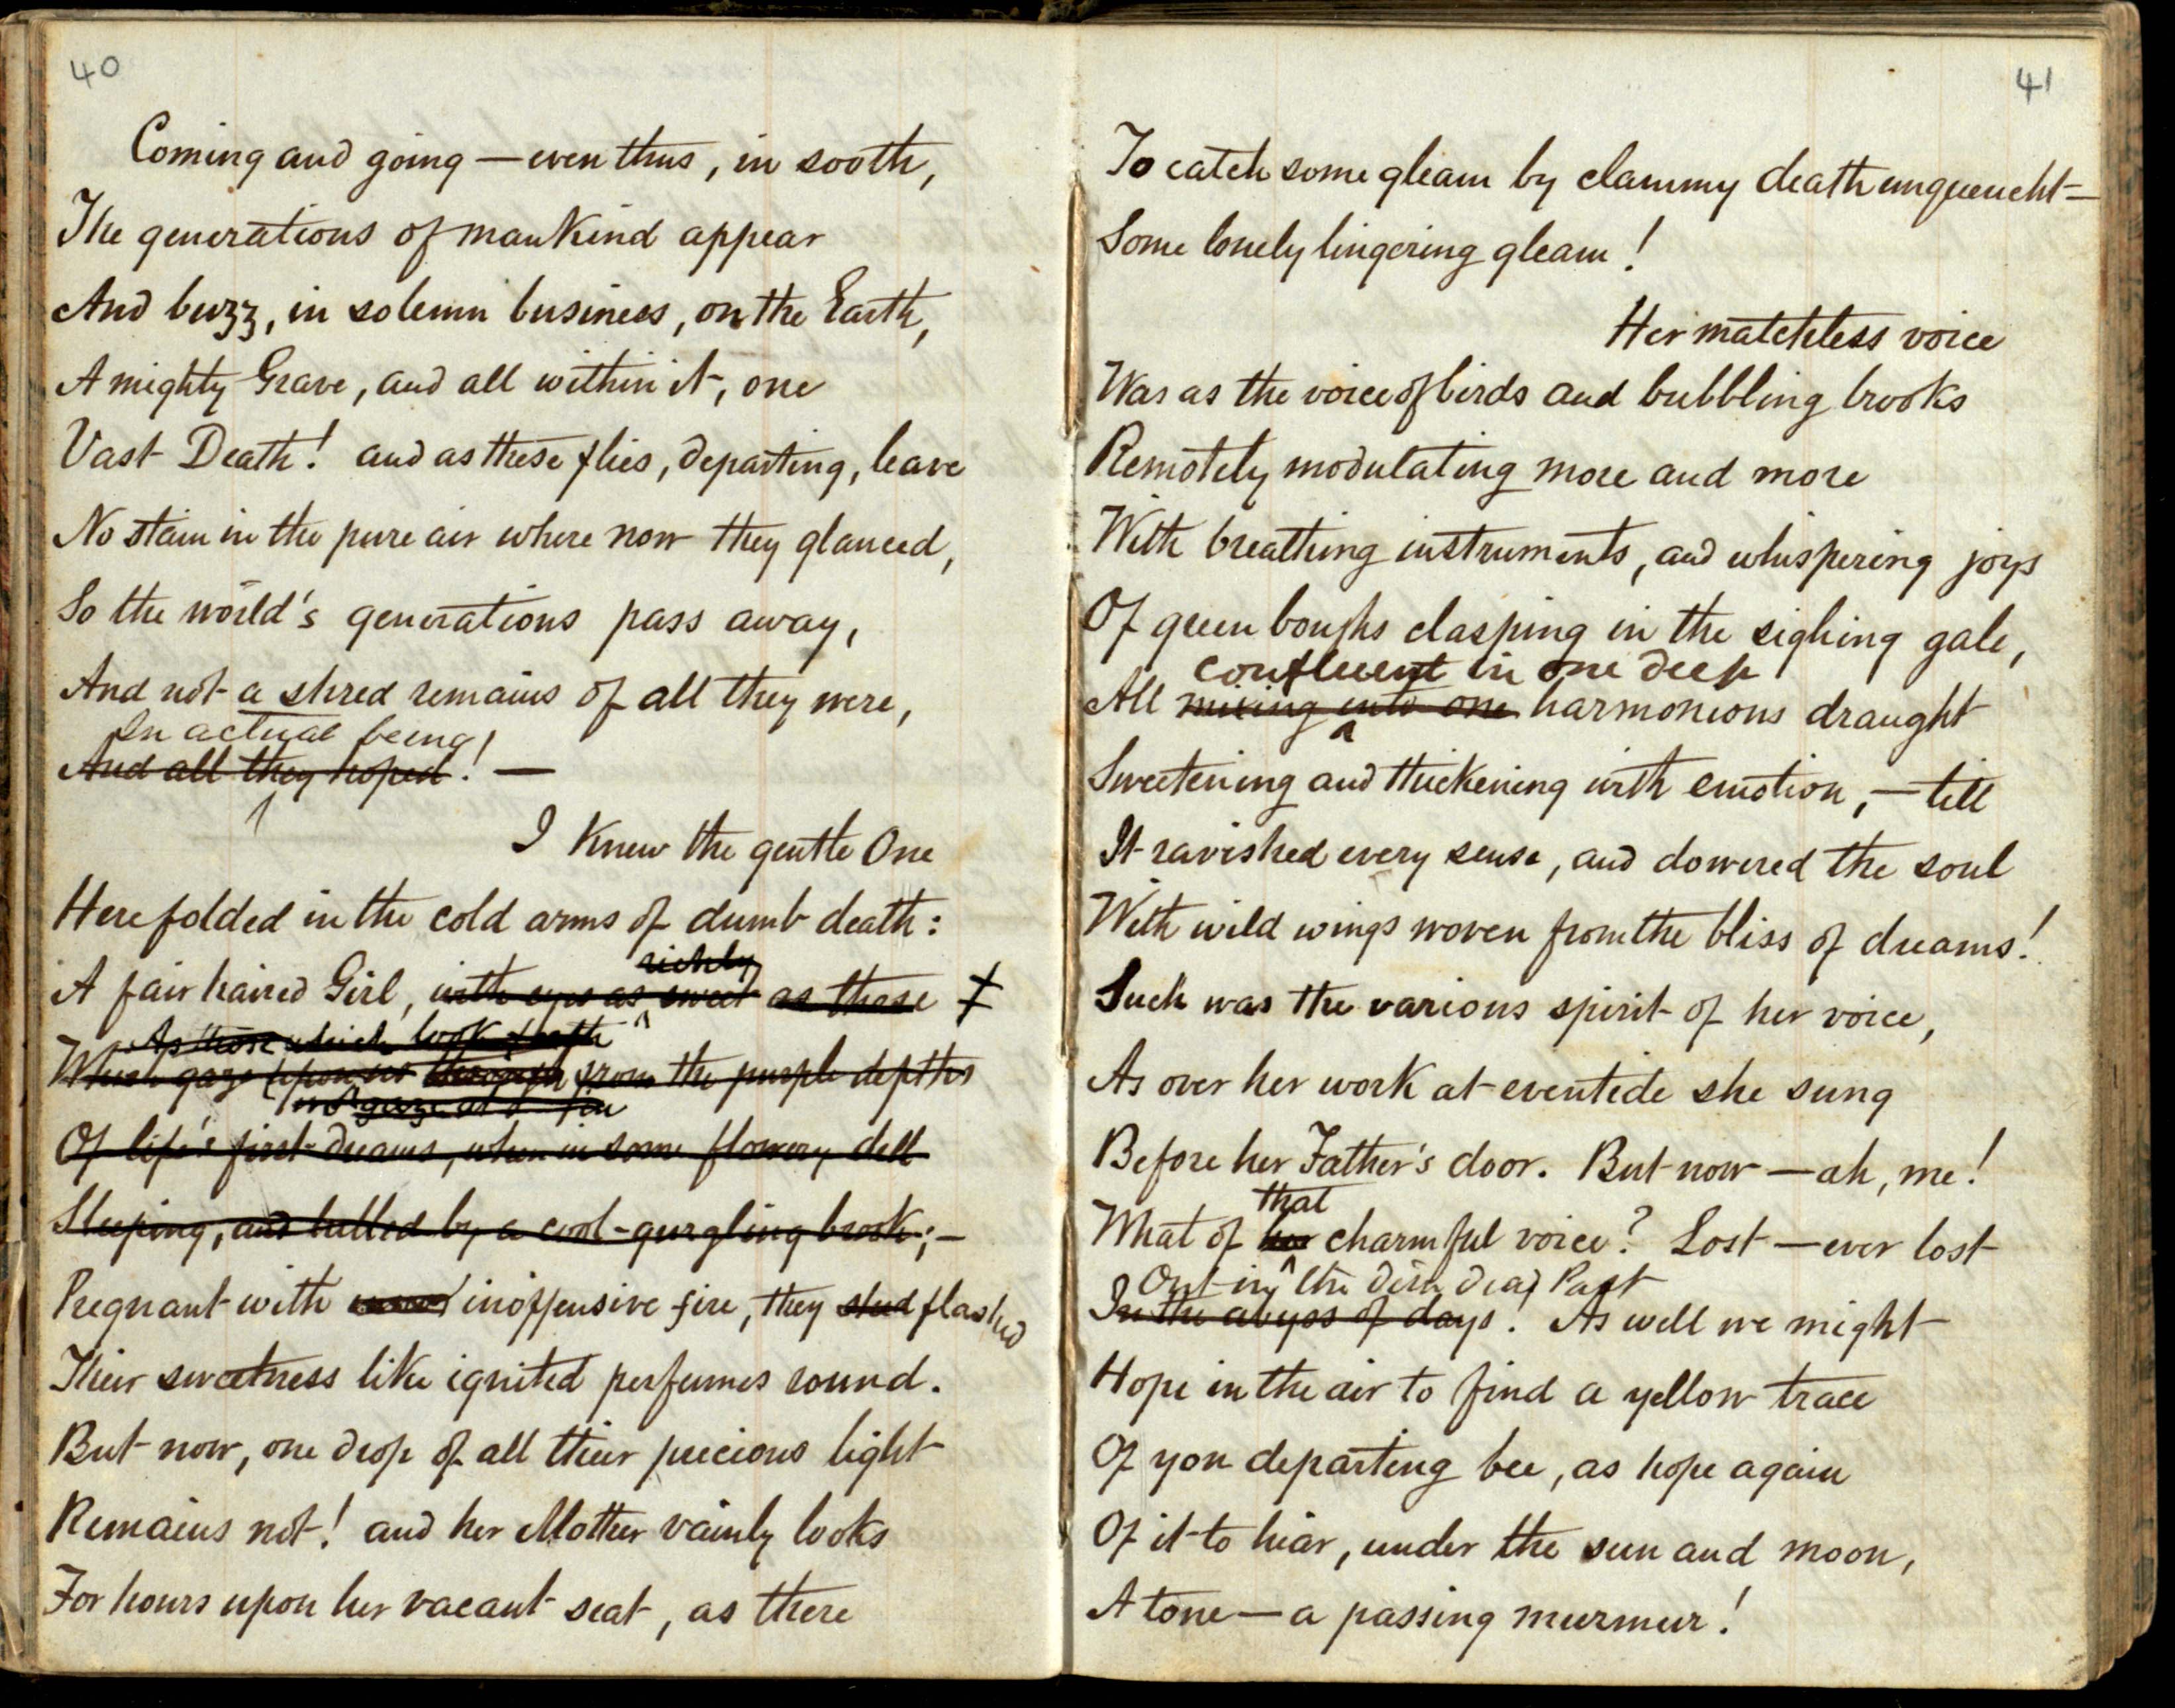 40
Coming and going — even thus, in sooth,
The generations of mankind appear
And buzz, in solemn business, on the Earth,
A mighty Grave, and all within it, one
Vast Death! and as these flies, departing, leave
No stain in the pure air where now they glanced,
So the world's generations pass away,
And not a shred remains of all they were,
In actual being!
And all they hoped! —
I knew the gentle One
Here folded in the cold arms of dumb death:
richly
A fair haired Girl, with eyes as sweet as those
As those which look forth
Which gaze upon us through from the purple depths
gaze at a
Of life's first dreams, when in some flowery dell
Sleeping, and lulled by a cool-gurgling brook; —
Pregnant with inoffensive fire, they shed flashed
Their sweetness like ignited perfumes round.
But now, one drop of all their precious light
Remains not! and her Mother vainly looks
For hours upon her vacant seat, as there
41
To catch some gleam by clammy death unquencht —
Some lonely lingering gleam!
Her matchless voice
Was as the voice of birds and bubbling brooks
Remotely modulating more and more
With breathing instruments, and whispering joys
Of green boughs clasping in the sighing gale,
confluent in one deep
All mixing into one harmonious draught
Sweetening and thickening with emotion, — till
It ravished every sense, and dowered the soul
With wild wings woven from the bliss of dreams!
Such was the various spirit of her voice,
As over her work at eventide she sung
Before her Father's door. But now — ah, me!
that
What of her charmful voice? Lost — ever lost
Out in the dim dead Past
In the abyss of days! As well we might
Hope in the air to find a yellow trace
Of yon departing bee, as hope again
Of it to hear, under the sun and moon,
A tone — a passing murmur!